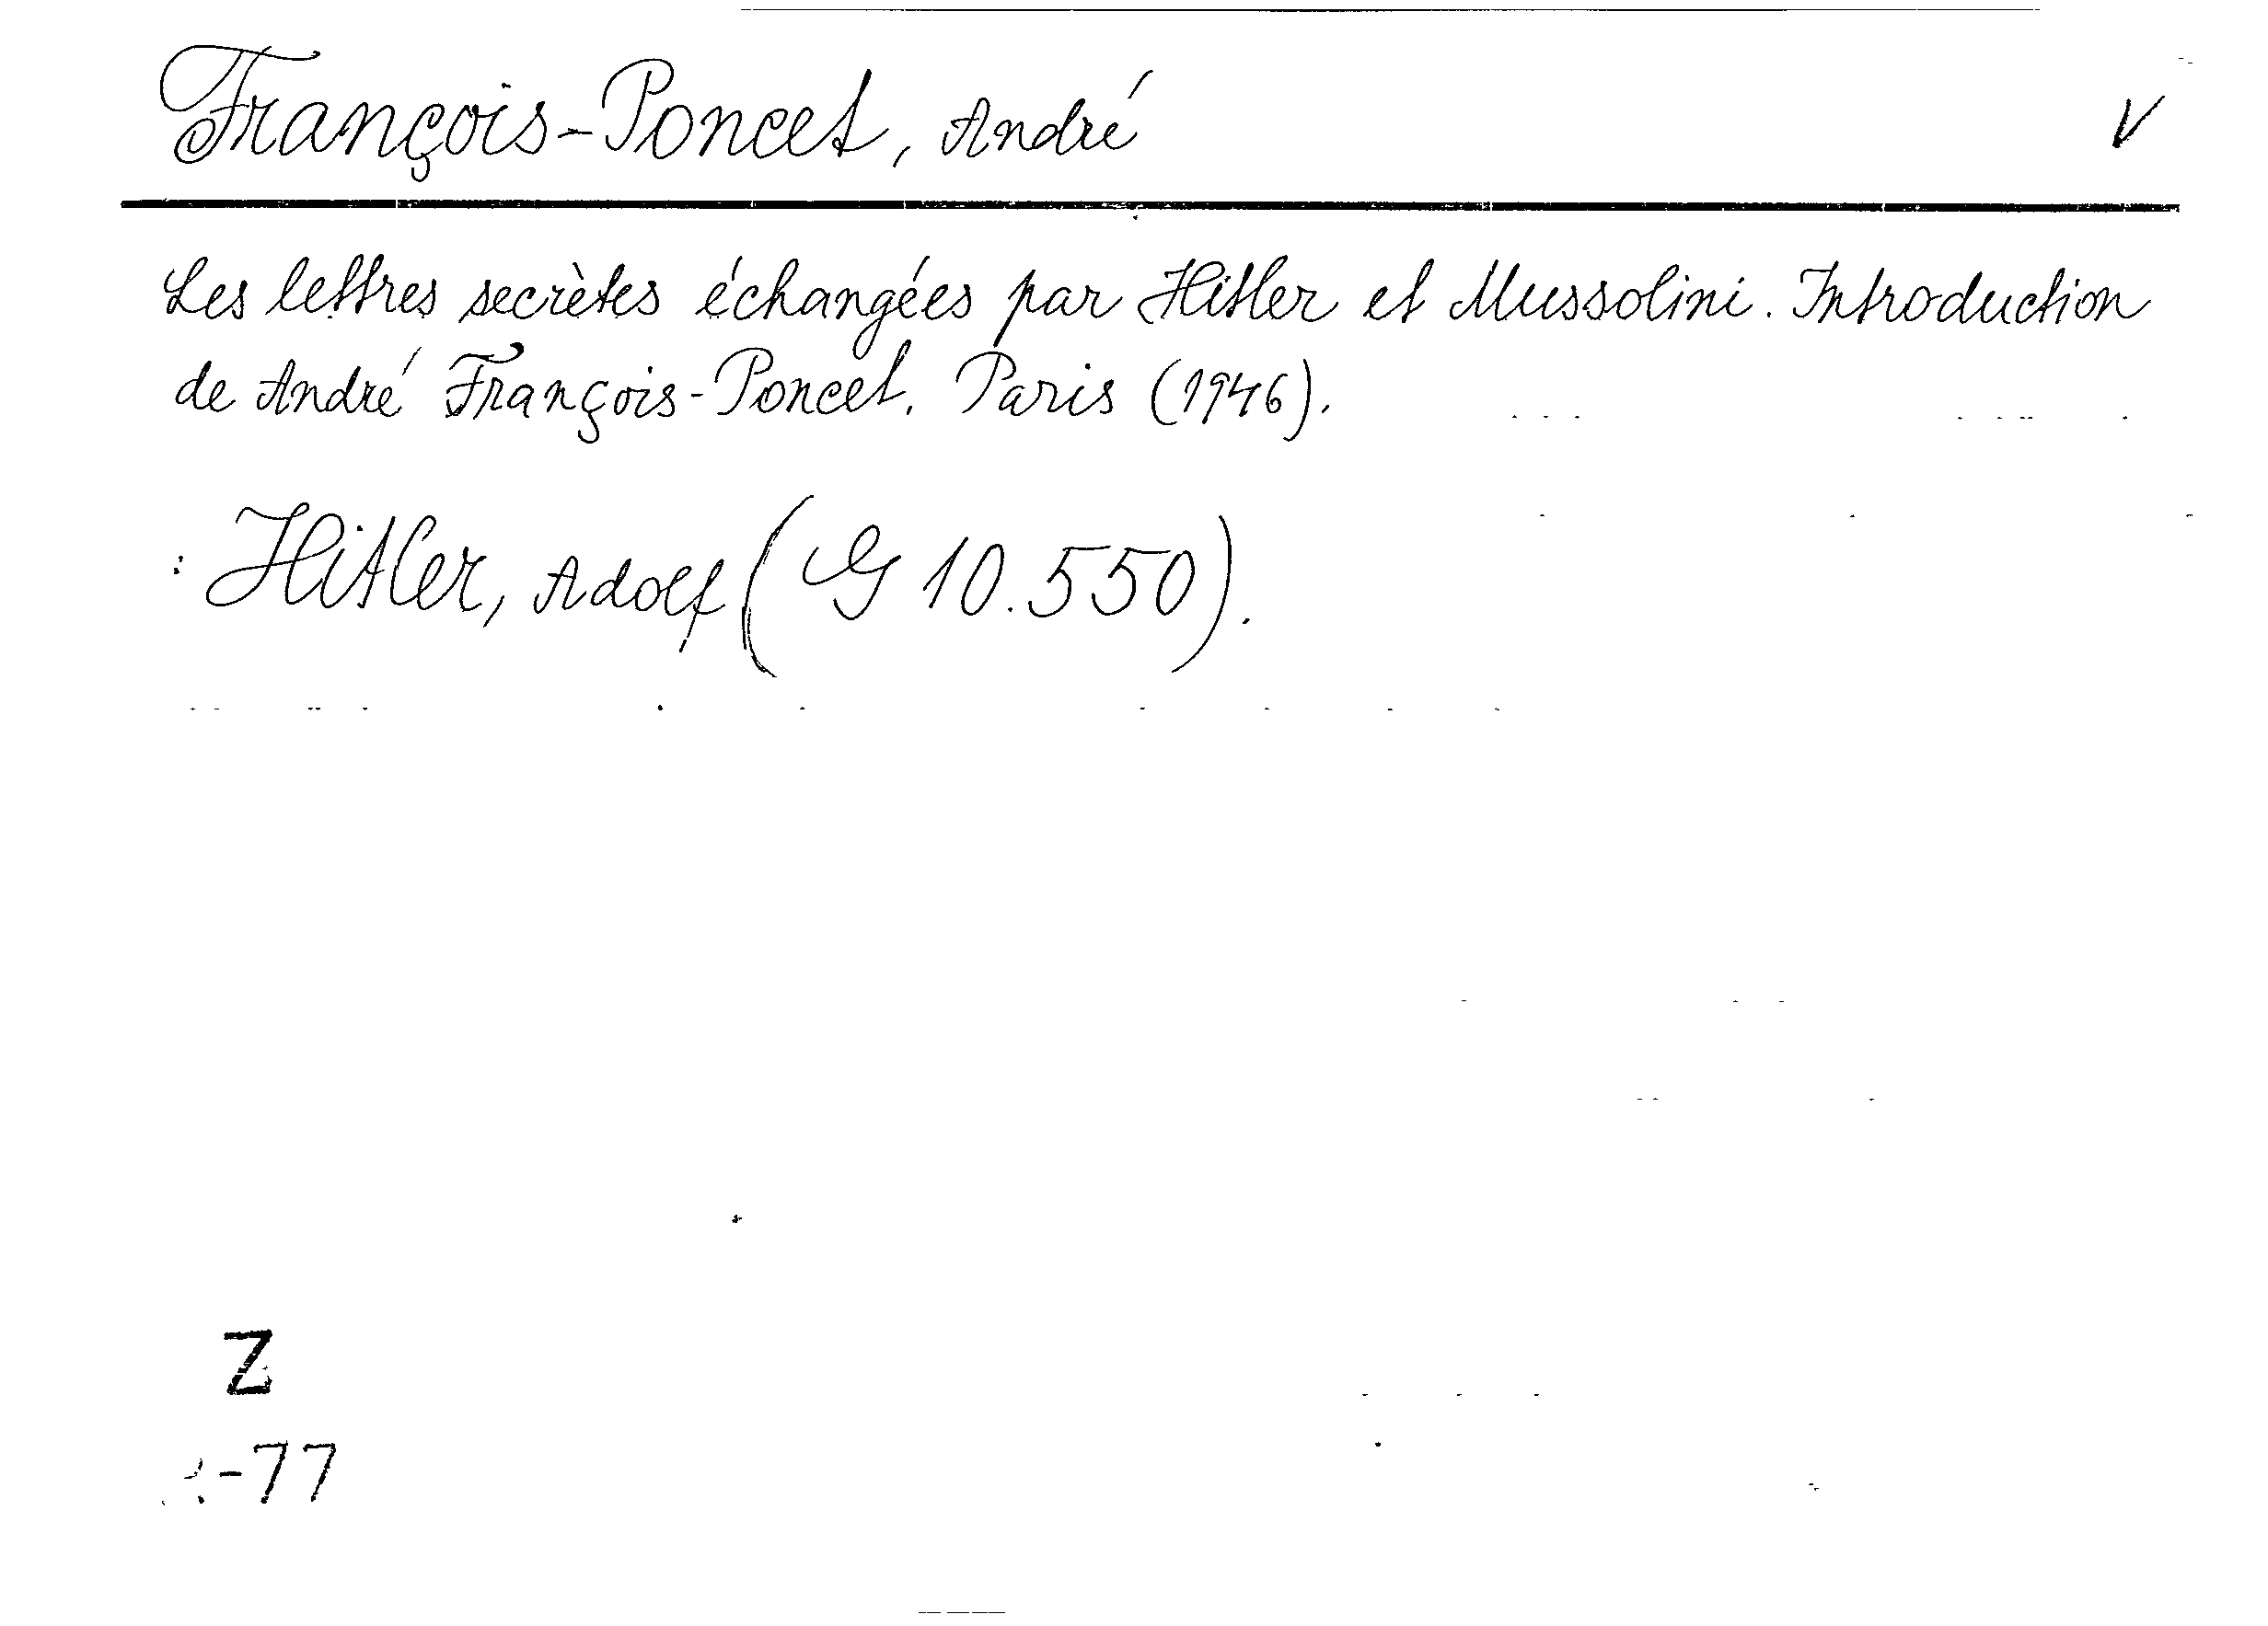 François-Poncet, André V
Les lettres secrètes échangées par Hitler et Mussolini. Introduction
de André François-Poncet. Paris (1946).
: Hitler, Adolf (G 10.550).
Z
-77